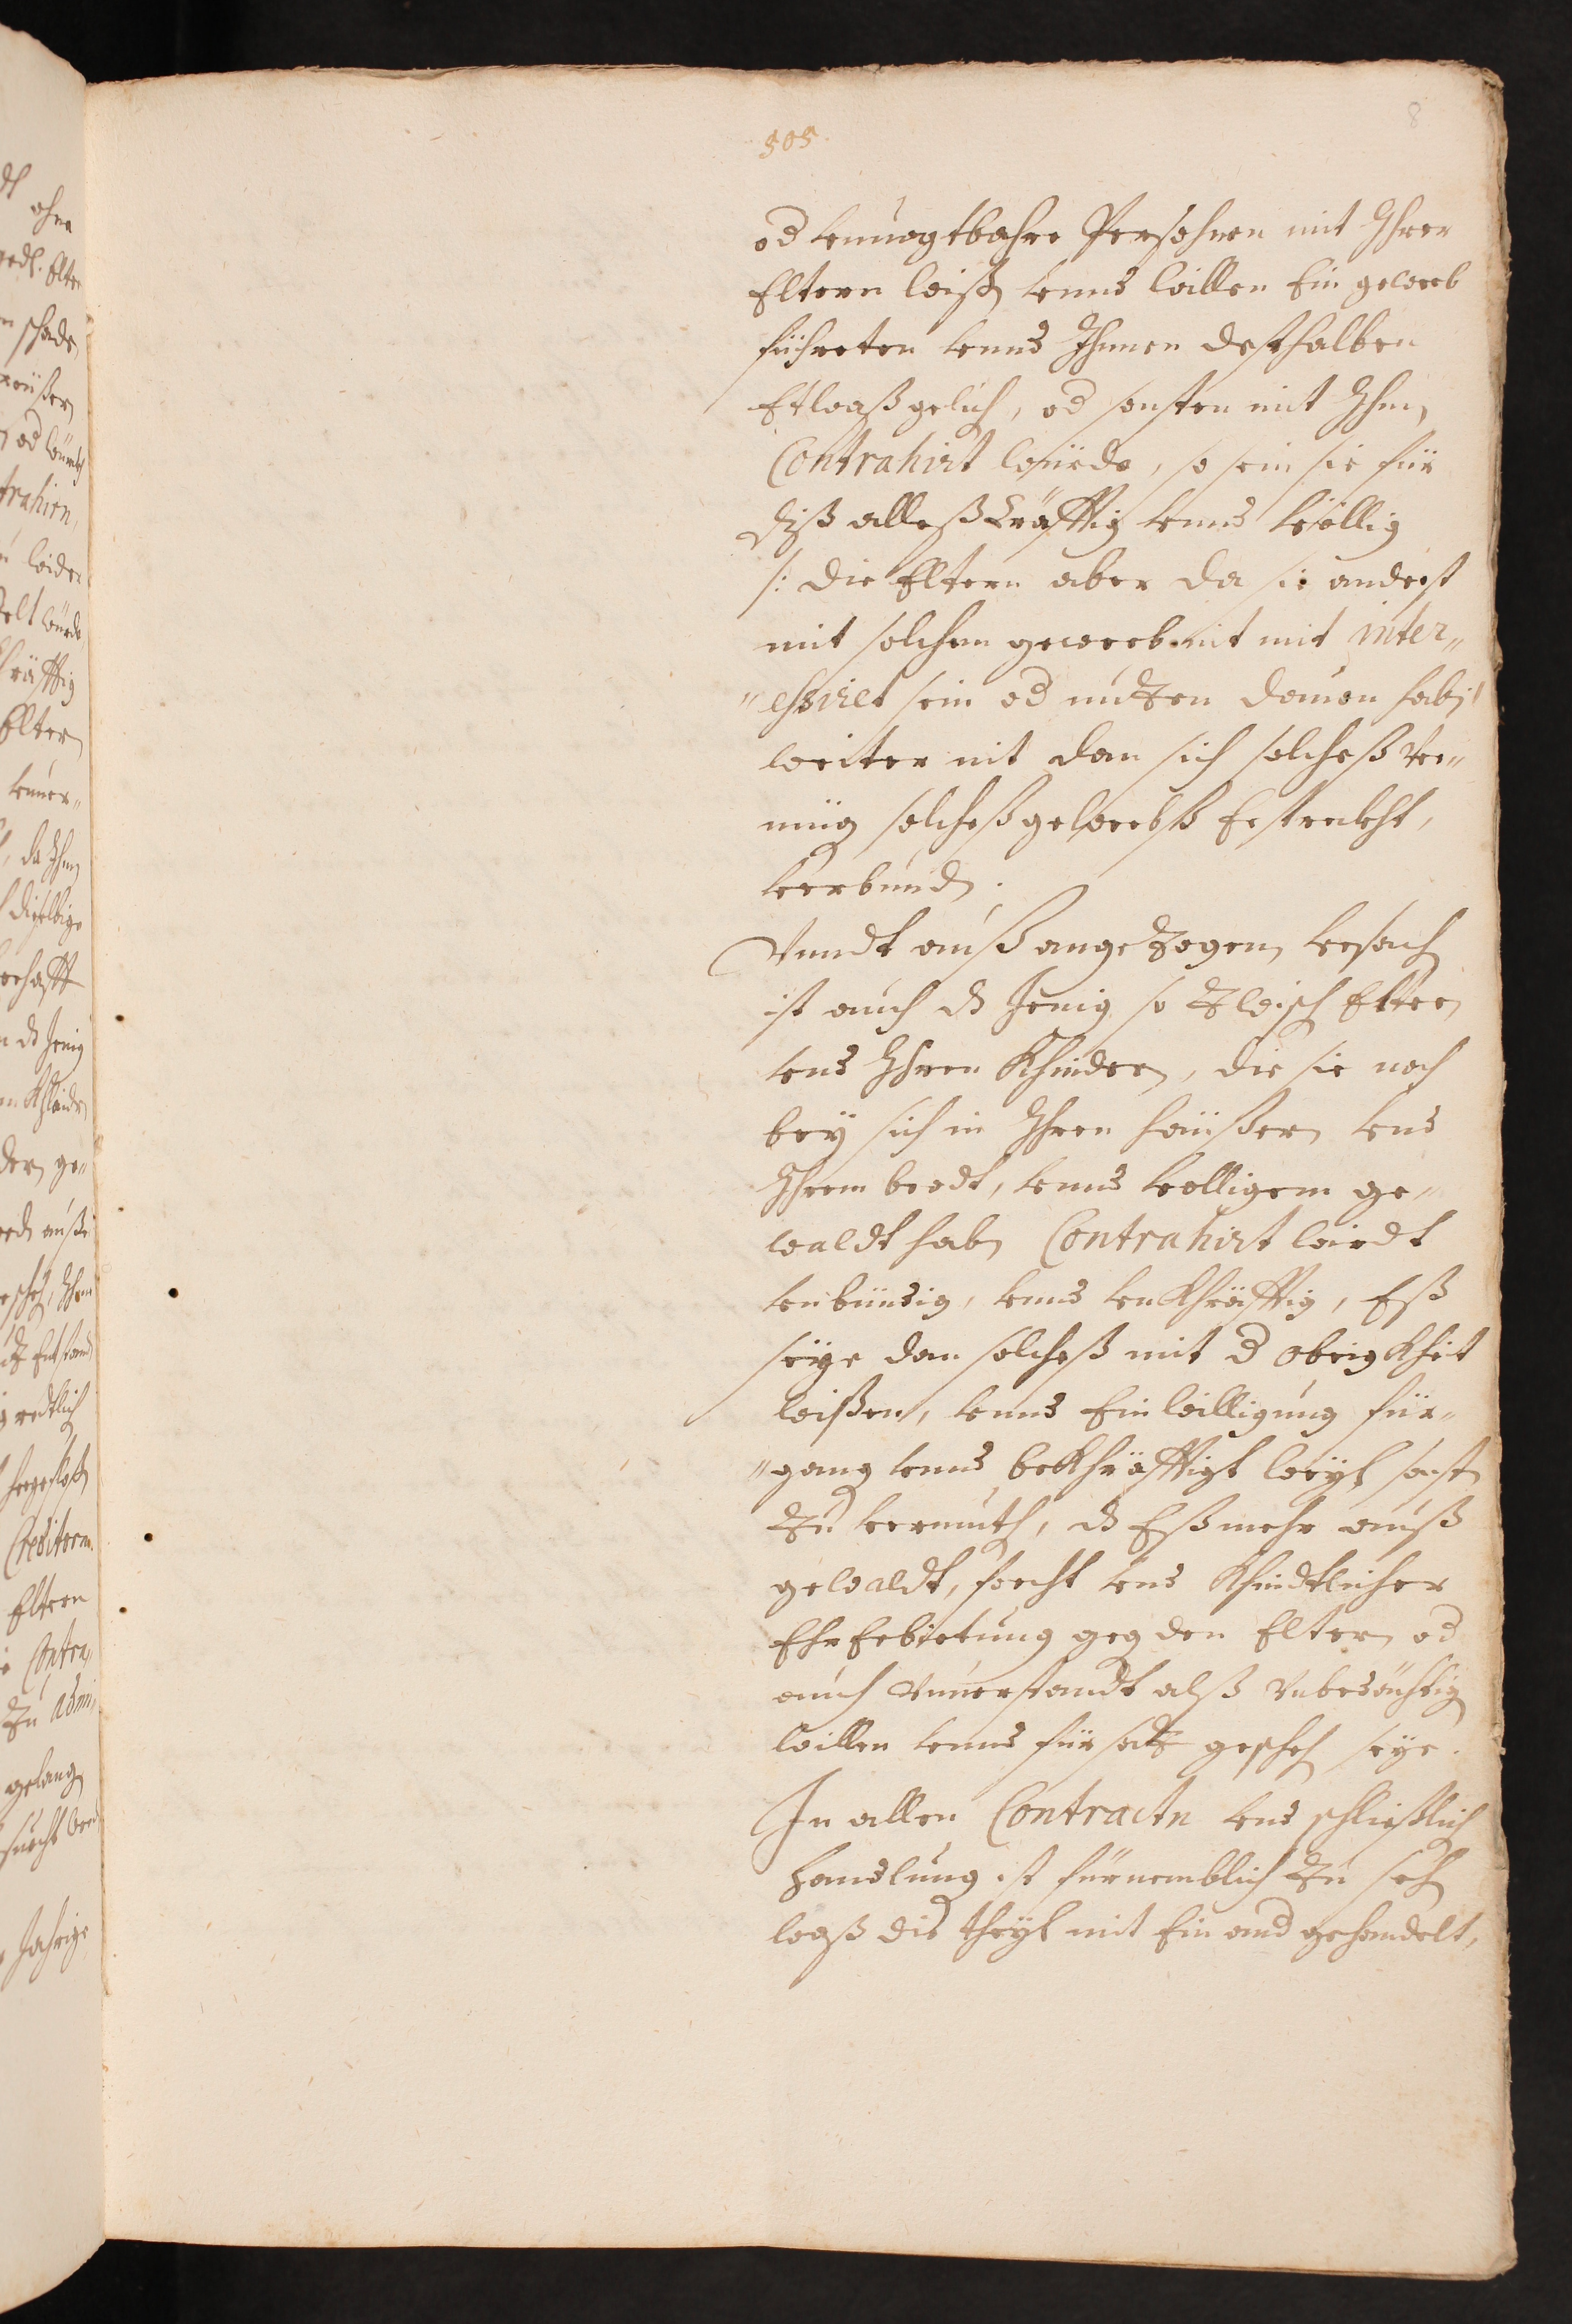 8
505.
od vnuogtbahre Persohnen mit Ihrer
Eltern wiß vnnd willen Ein gewerb
führeten vnnd Ihnen desthalben
Etwaß gelich, od sonsten mit Ihn
Contrahirt würde, so sein sie für
diß alleß Kräfftig vnnd völlig
/: die Eltern aber da sie anderst
mit solchem gewerb nit mit inter„
„essiret sein od nutzen dauon hab /
weiter nit dan sich solcheß ver„
müg solcheß gewerbß Erstreckht,
verbund.
Vnndt auß angezogen vrsach
ist auch dz Jenig so zwisch Elter
vnd Ihren Khinder, die sie noch
bey sich in Ihren haüßer vnd
Ihrem brodt, vnnd völligem ge„
waldt hab Contrahirt wirdt
vnbündig, vnnd vnKhräfftig, Eß
seye dan solcheß mit d obrigKheit
wißen, vnnd Einwilligung für„
„gang vnnd beKhräfftigt weyl sonst
zu vermuth, dz Eß mehr auß
gewaldt, forcht vnd Khindtlicher
EhrErbietung geg den Elter od
auch vnuerstandt alß vnbedächtig
willen vnnd fürsatz gescheh seye.
In allen Contractn vnd schließlich
handlung ist fürnemblich zu seh
waß die theyl mit Ein and gehandelt,